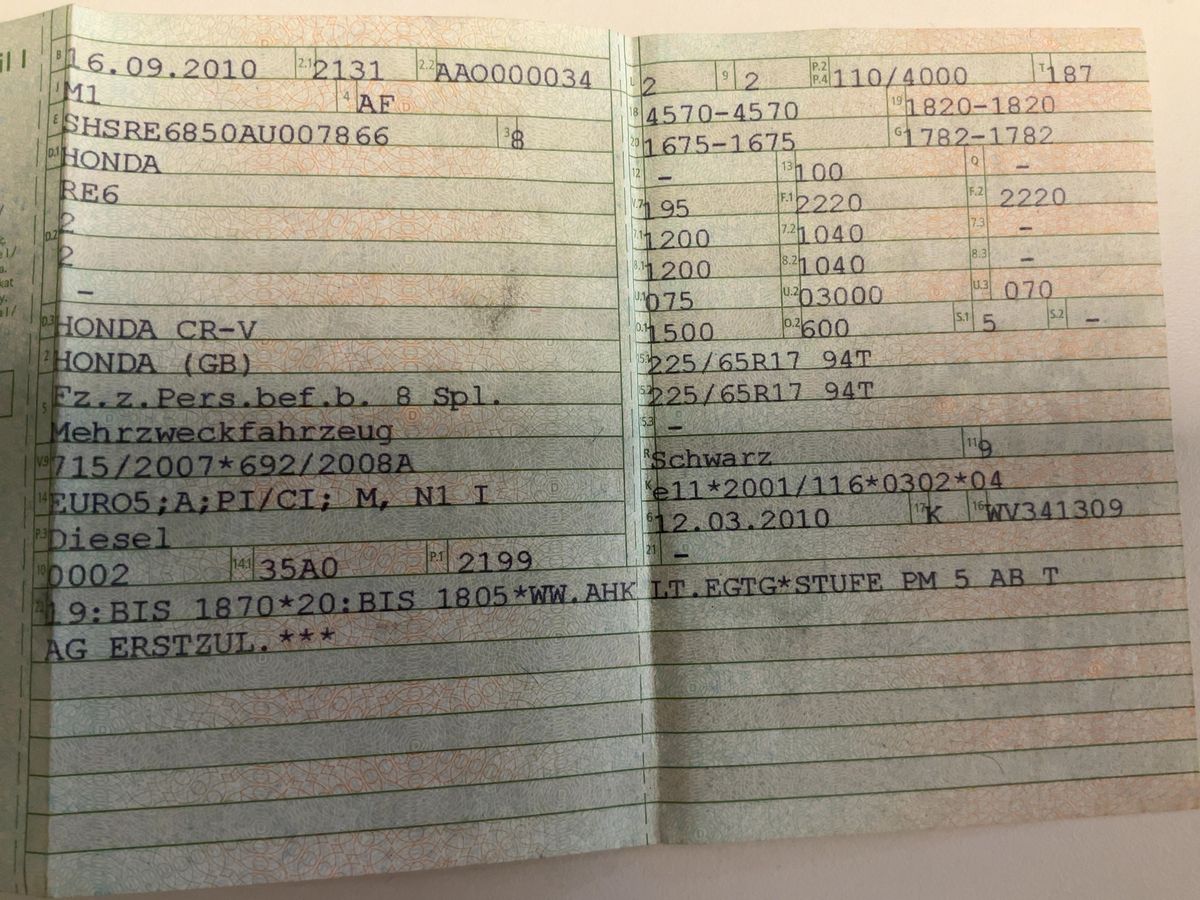 B 16.09.2010 2.1 2131 2.2 AAO000034
J M1 4 AF
E SHSRE6850AU007866 3 8
D.1 HONDA
RE6
D.2 2
2
–
D.3 HONDA CR-V
2 HONDA (GB)
5 Fz.z.Pers.bef.b. 8 Spl.
Mehrzweckfahrzeug
V.9 715/2007*692/2008A
14 EURO5;A;PI/CI; M, N1 I
P.3 Diesel
10 0002 14.1 35A0 P.1 2199
L 2 9 2 P.2 P.4 110/4000 T 187
18 4570-4570 19 1820-1820
20 1675-1675 G 1782-1782
12 – 13 100 Q –
V.7 195 F.1 2220 F.2 2220
7.1 1200 7.2 1040 7.3 –
8.1 1200 8.2 1040 8.3 –
U.1 075 U.2 03000 U.3 070
O.1 1500 O.2 600 S.1 5 S.2 –
15.1 225/65R17 94T
15.2 225/65R17 94T
15.3 –
R Schwarz 11 9
K e11*2001/116*0302*04
6 12.03.2010 17 K 16 WV341309
21 –
22 19:BIS 1870*20:BIS 1805*WW.AHK LT.EGTG*STUFE PM 5 AB T
AG ERSTZUL.***